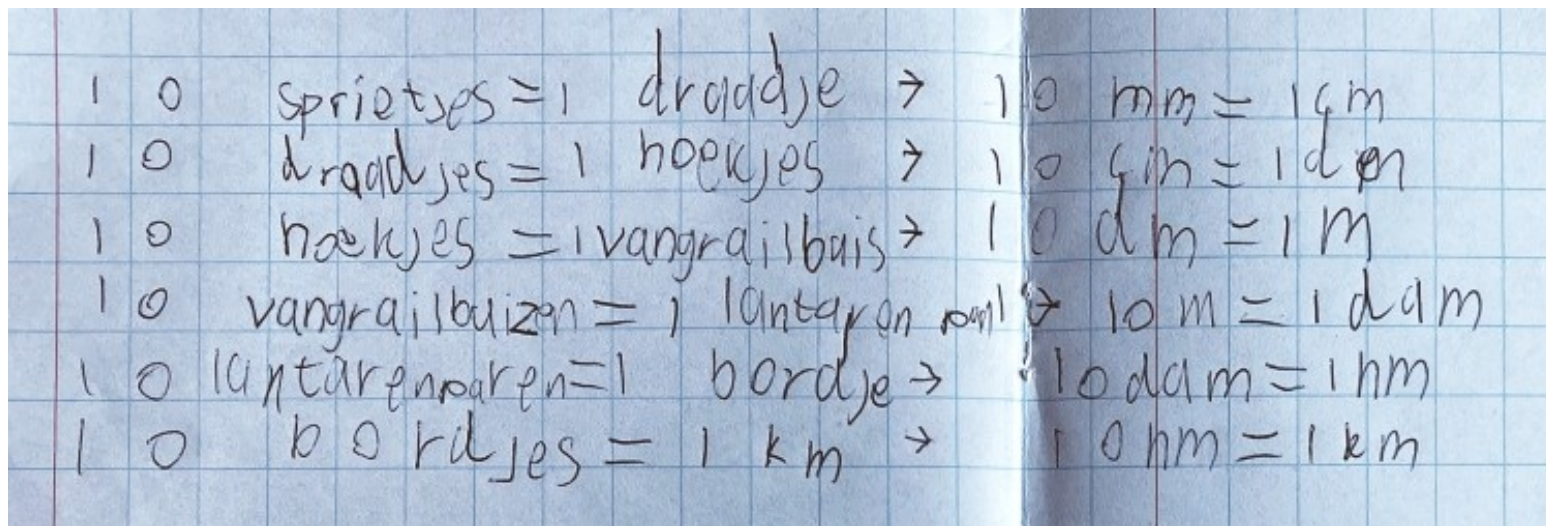 10 sprietjes = 1 draadje → 10 mm = 1 cm
10 draadjes = 1 hoekjes → 10 cm = 1 dm
10 hoekjes = 1 vangrailbuis → 10 dm = 1 m
10 vangrailbuizen = 1 lantaren → 10 m = 1 dam
10 lantarenparen = 1 bordje → 10 dam = 1 hm
10 bordjes = 1 km → 10 hm = 1 km